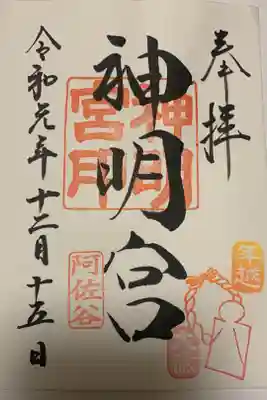 奉拝
神明宮
神明宮印
阿佐谷
年越
令和元年十二月十五日